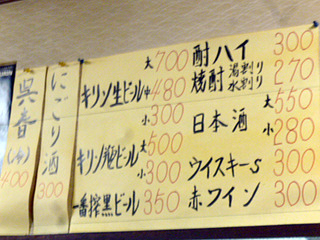 呉春(小)
400
にごり酒
300
キリン生ビール 大 700
中 480
小 300
キリン瓶ビール 大 500
小 300
一番搾黒ビール 350
酎ハイ 300
焼酎 湯割り 水割り 270
日本酒 大 550
小 280
ウイスキーS 300
赤ワイン 300